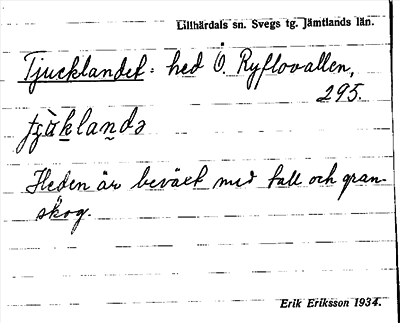 Lillhärdals sn. Svegs tg. Jämtlands län.
Tjucklandet: hed Ö. Ryflovallen,
295.
Heden är beväxt med tall och gran-
skog.
Erik Eriksson 1934.